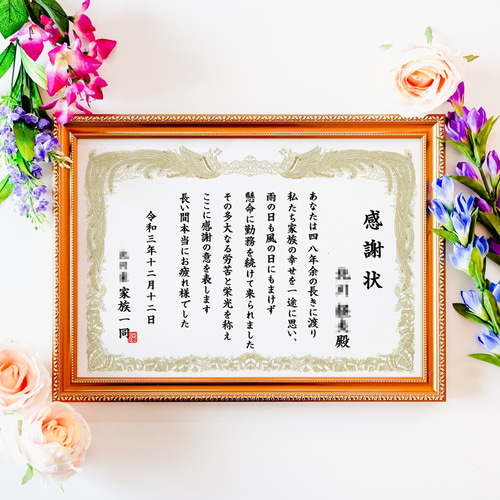 感謝状
殿
あなたは四八年余の長きに渡り
私たち家族の幸せを一途に思い、
雨の日も風の日にもまけず
懸命に勤務を続けて来られました
その多大なる労苦と栄光を称え
ここに感謝の意を表します
長い間本当にお疲れ様でした
令和三年十二月十二日
家族一同